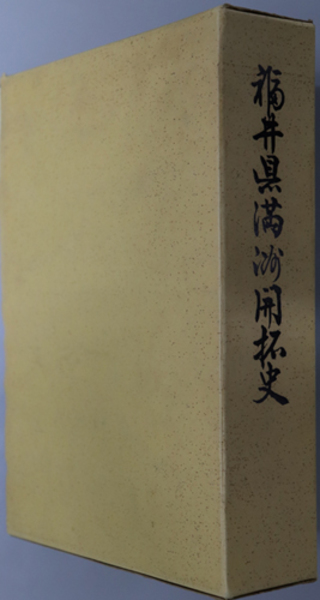 福井県満洲開拓史